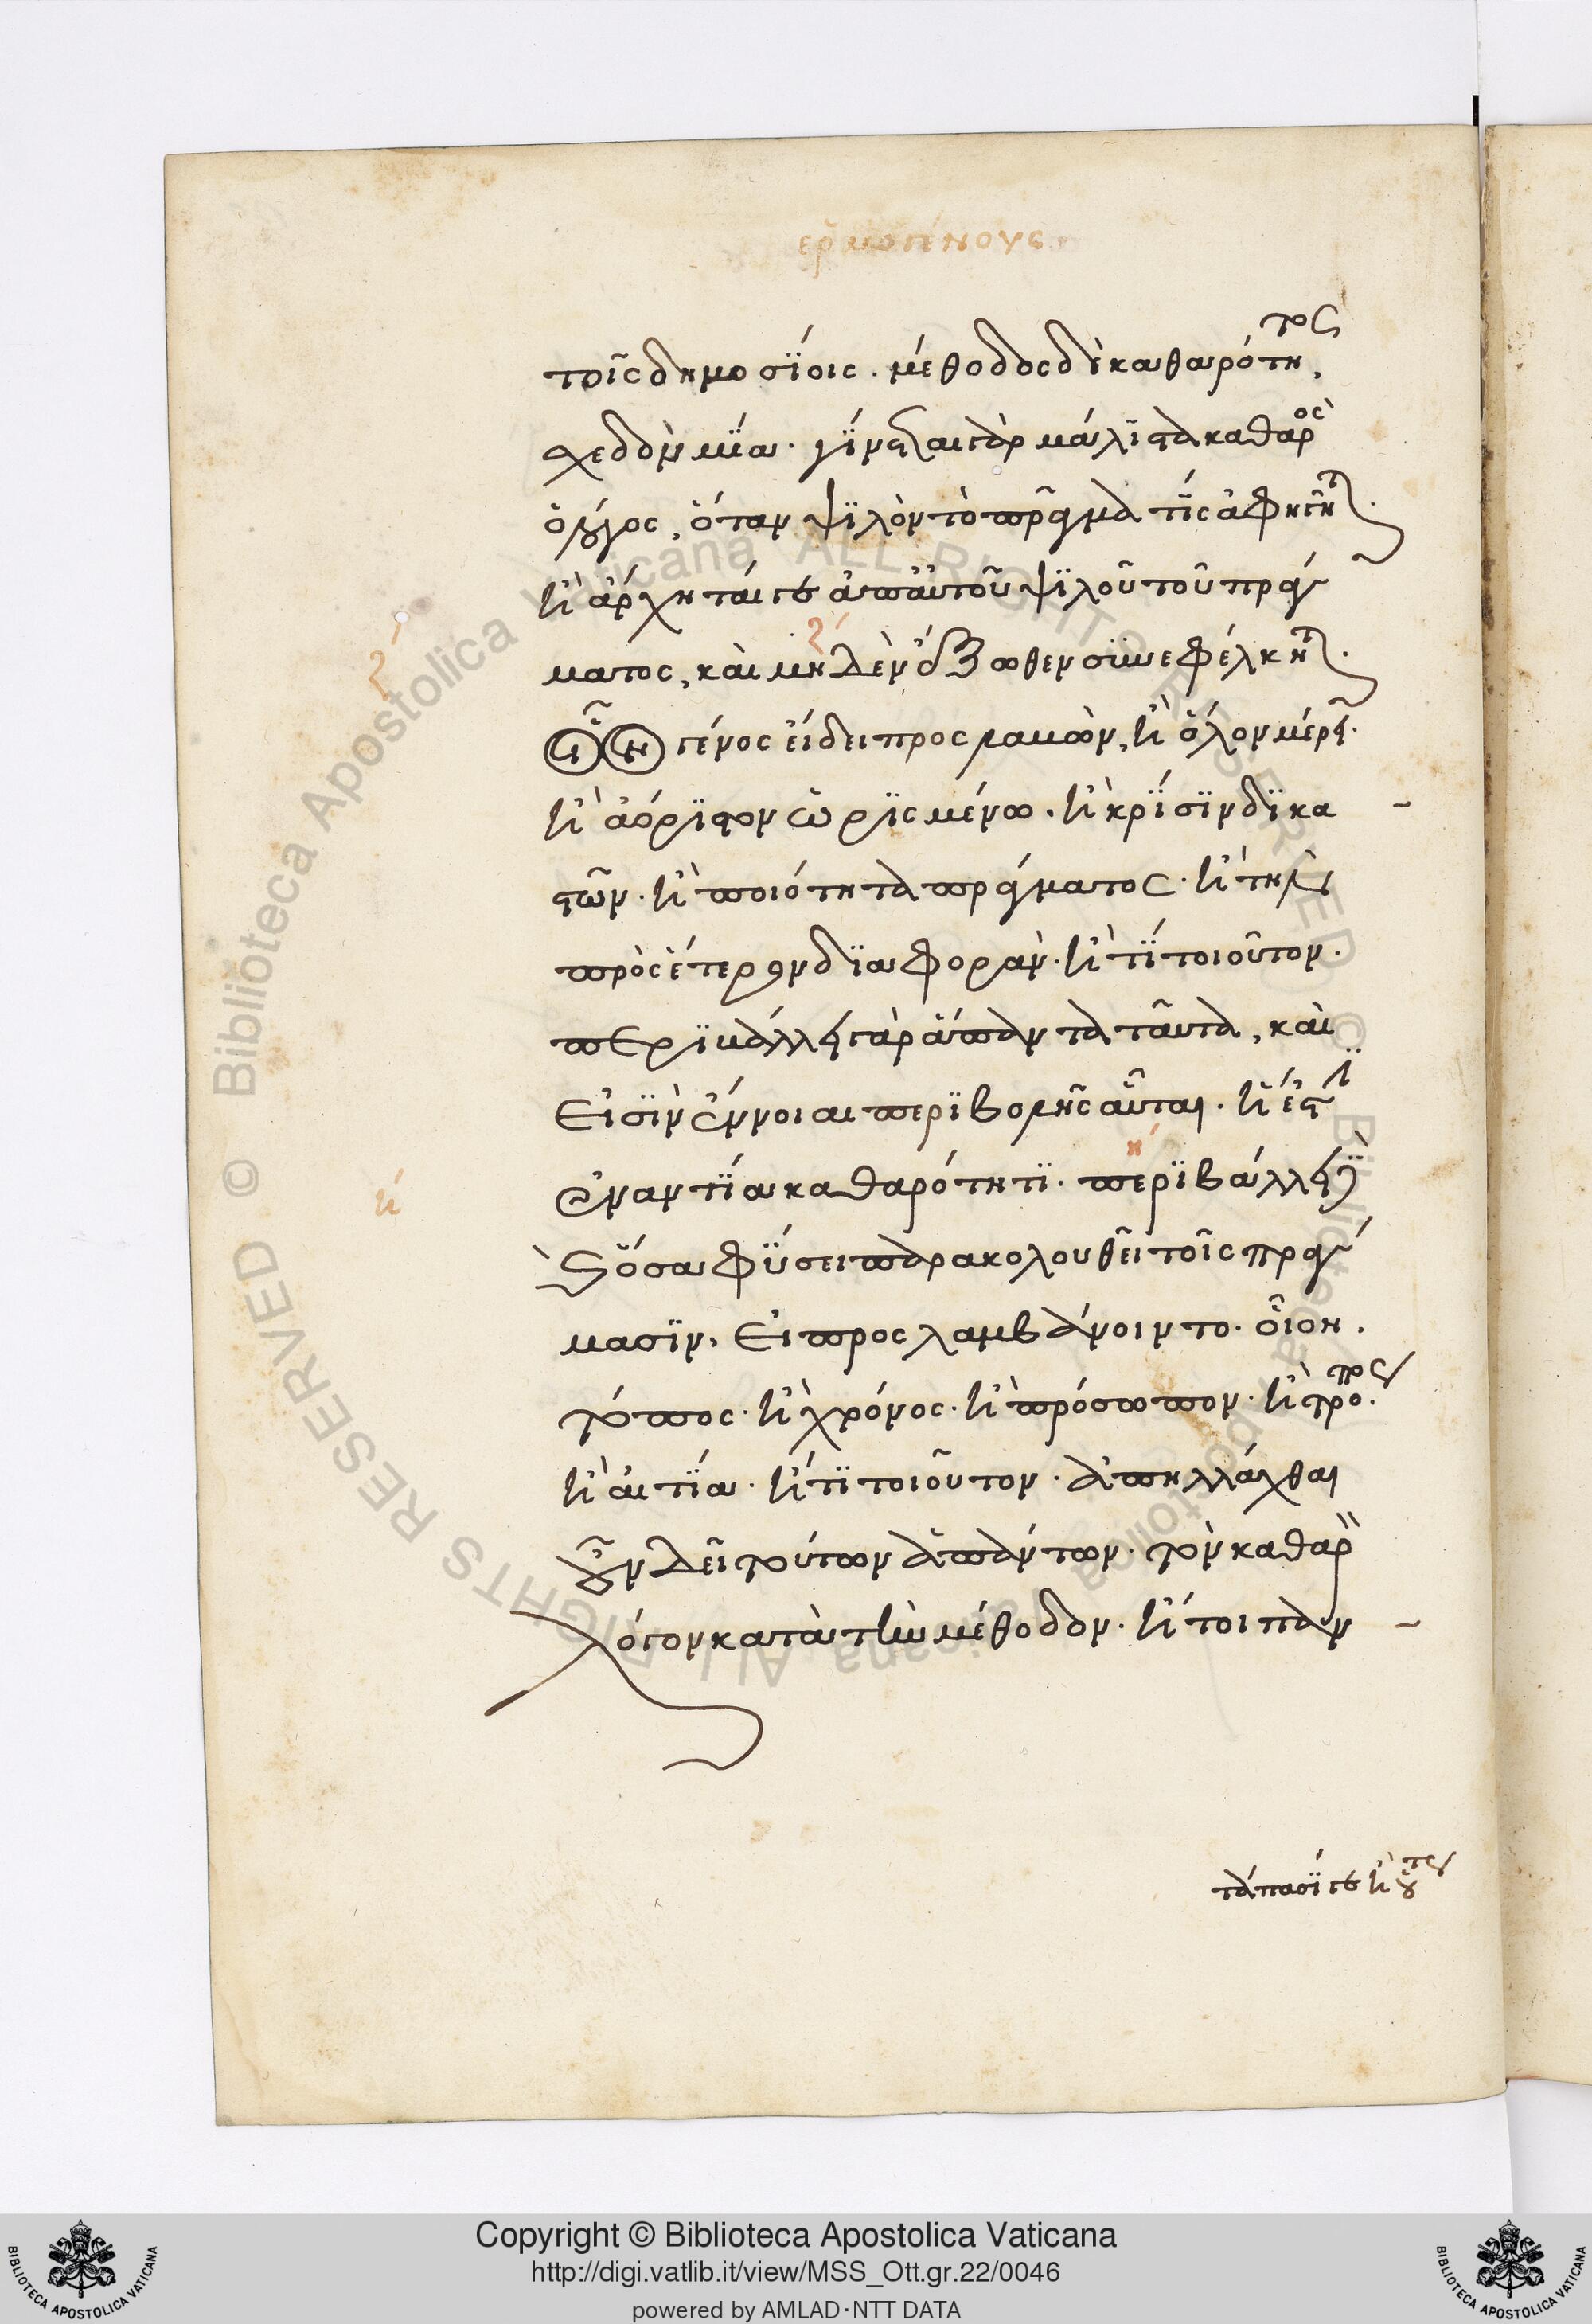 ἑρμογένους
τοῖς δημοσίοις. μέθοδος δὲ καθαρότητος,
σχεδὸν μία. γίνεται γὰρ μάλιστα καθαρὸς
ὁ λόγος, ὅταν ψιλὸν τὸ πρᾶγμά τις ἀφηγῆται.
καὶ ἄρχηταί γε ἀπ' αὐτοῦ ψιλοῦ τοῦ πράγ
ματος, καὶ μηδὲν ἔξωθεν συνεφέλκηται.
οἷον γένος εἴδει προσλαμβὼν, καὶ ὅλον μέρει.
καὶ ἀόριστον ὡρισμένω. καὶ κρίσιν δικα
στῶν. καὶ ποιότητα πράγματος. καὶ τὴν
πρὸς ἕτερον διαφοράν. καὶ τί τοιοῦτον.
περιβάλλει γὰρ ἅπαντα ταῦτα, καὶ
εἰσὶν ἔννοιαι περιβολῆς αὗται. καὶ ἔστιν
ἐναντία καθαρότητι. περιβάλλει δὲ
καὶ ὅσα φύσει παρακολουθεῖ τοῖς πράγ
μασιν, εἰ προσλαμβάνοιντο. οἷον.
τόπος. καὶ χρόνος. καὶ πρόσωπον. καὶ τρόπος.
καὶ αἰτία. καί τι τοιοῦτον. ἀπηλλάχθαι
οὖν δεῖ τούτων ἁπάντων. τὸν καθαρὸν
λόγον κατὰ τὴν μέθοδον. καί τοι παν
τάπασί γε καὶ οὕτως
Copyright © Biblioteca Apostolica Vaticana
http://digi.vatlib.it/view/MSS_Ott.gr.22/0046
powered by AMLAD·NTT DATA